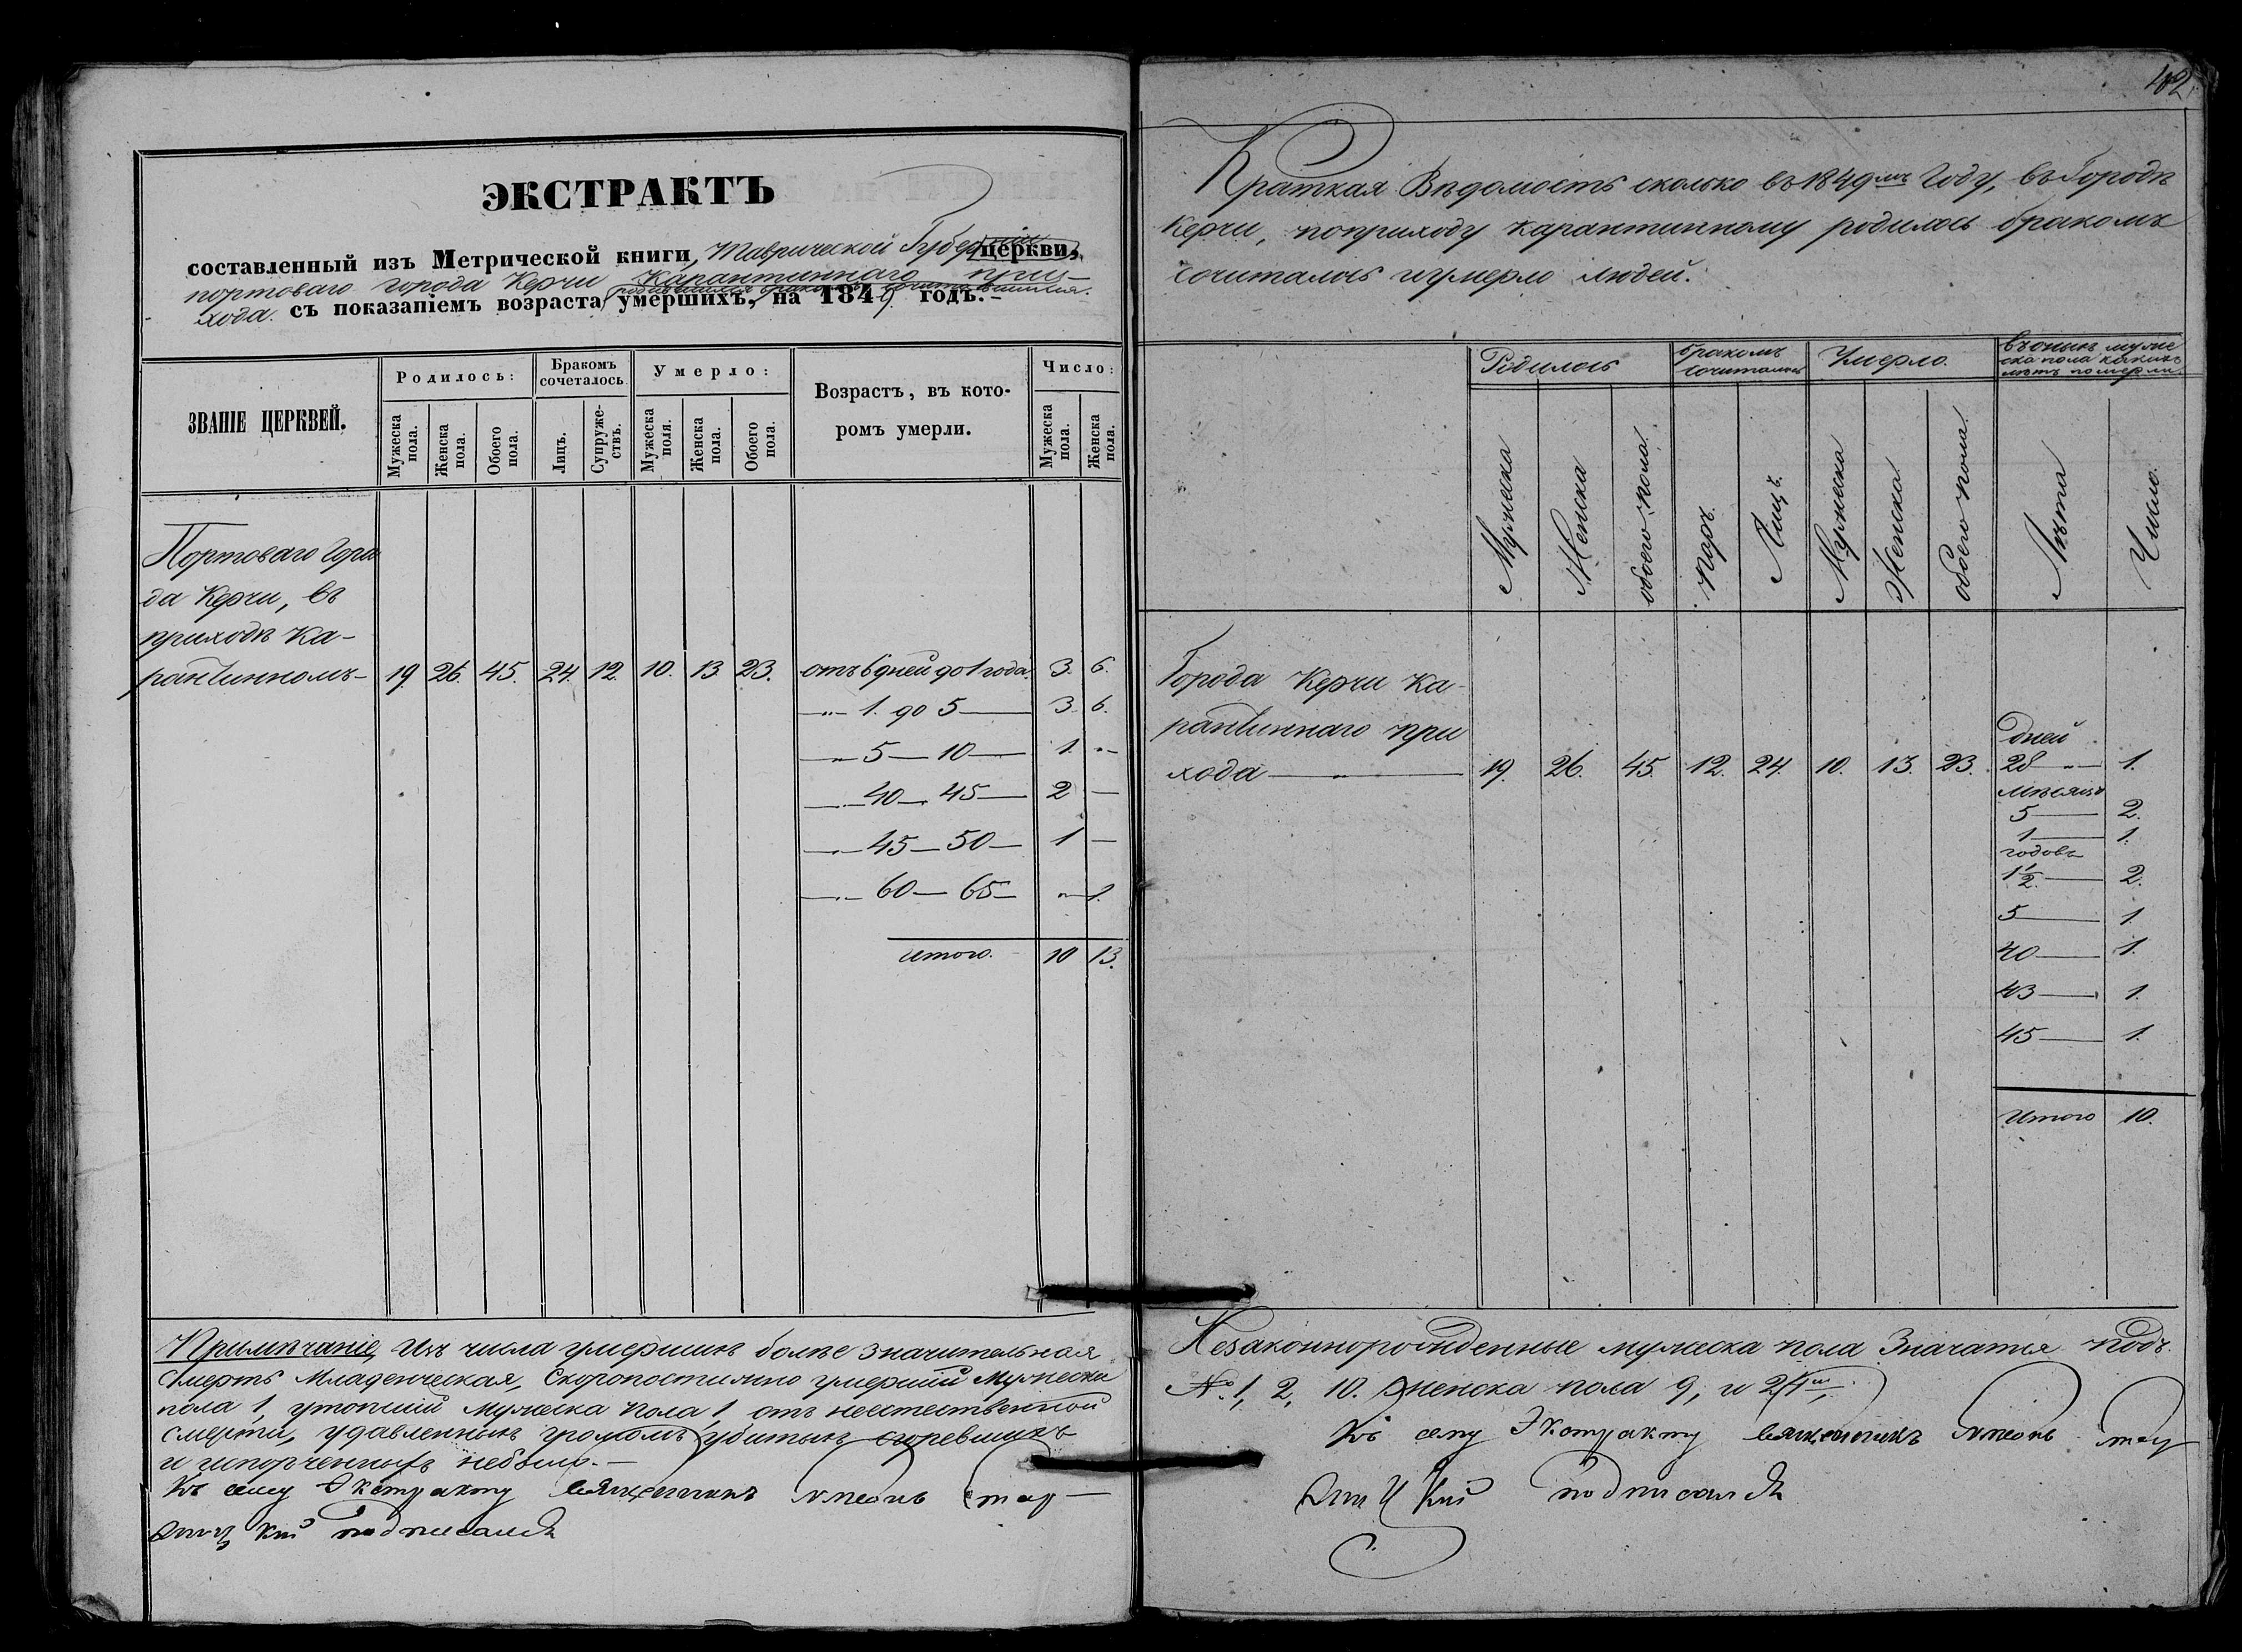 ЭКСТРАКТЪ
составленный изъ Метрической книги, Таврической Губерніи церкви,
портоваго города Керчи Карантиннаго при-
хода. съ показаніемъ возраста родившихся бракомъ сочитавшихся умершихъ, на 1849 годъ.-
ЗВАНІЕ ЦЕРКВЕЙ.
Родилось:
Бракомъ сочеталось.
Умерло:
Возрастъ, въ кото-
ромъ умерли.
Число:
Мужеска пола.
Женска пола.
Обоего пола.
Лицъ.
Супруже-
ствъ.
Мужеска пола.
Женска пола.
Обоего пола.
Мужеска пола.
Женска пола.
Портоваго Горо
да Керчи, въ
приходѣ Ка-
рантинномъ- 19. 26. 45. 24. 12. 10. 13. 23. отъ 6 дней до 1 года. 3. 6.
—"— 1. до 5 — 3. 6.
—"— 5 — 10 — 1. "—
—"— 40 — 45 — 2 —
—"— 45 — 50 — 1 —
—"— 60 — 65 — "— 1.
Итого. 10 13.
Примѣчаніе, Изъ числа умершихъ болѣе значительная
смерть Младенческая, Скоропостижно умершій Мужеска
пола 1, утопшій мужеска пола 1, отъ неестественной
смерти, удавленныхъ громомъ убитыхъ сгоревшихъ
и испорченныхъ небыло.-
Къ сему Экстракту священникъ Симеонъ Стар-
ницкій подписался
402
Краткая Вѣдомость сколько въ 1849мъ Году, въ Городѣ
Керчи, поприходу карантинному родилось бракомъ
сочиталось и умерло людей.
Родилось
бракомъ сочиталось
Умерло.
въ оныхъ муже
ска пола какихъ
лѣтъ померли.
Мужеска
Женска
обоего пола.
Паръ.
Лицъ.
Мужеска
Женска
обоего пола.
Лѣта
Число.
Города Керчи Ка-
рантиннаго при
хода —"— 19. 26. 45. 12. 24. 10. 13. 23.
дней
28 — 1.
мѣсяцъ
5 — 2.
1 — 1.
годовъ
1 1/2. — 2.
5 — 1.
40 — 1.
43 — 1.
45 — 1.
Итого 10.
Незаконнорожденные мужеска пола Значатся подъ
№. 1, 2, 10. женска пола 9, и 24мъ,
Къ сему Экстракту священникъ Симеонъ Стар
ницкій подписался